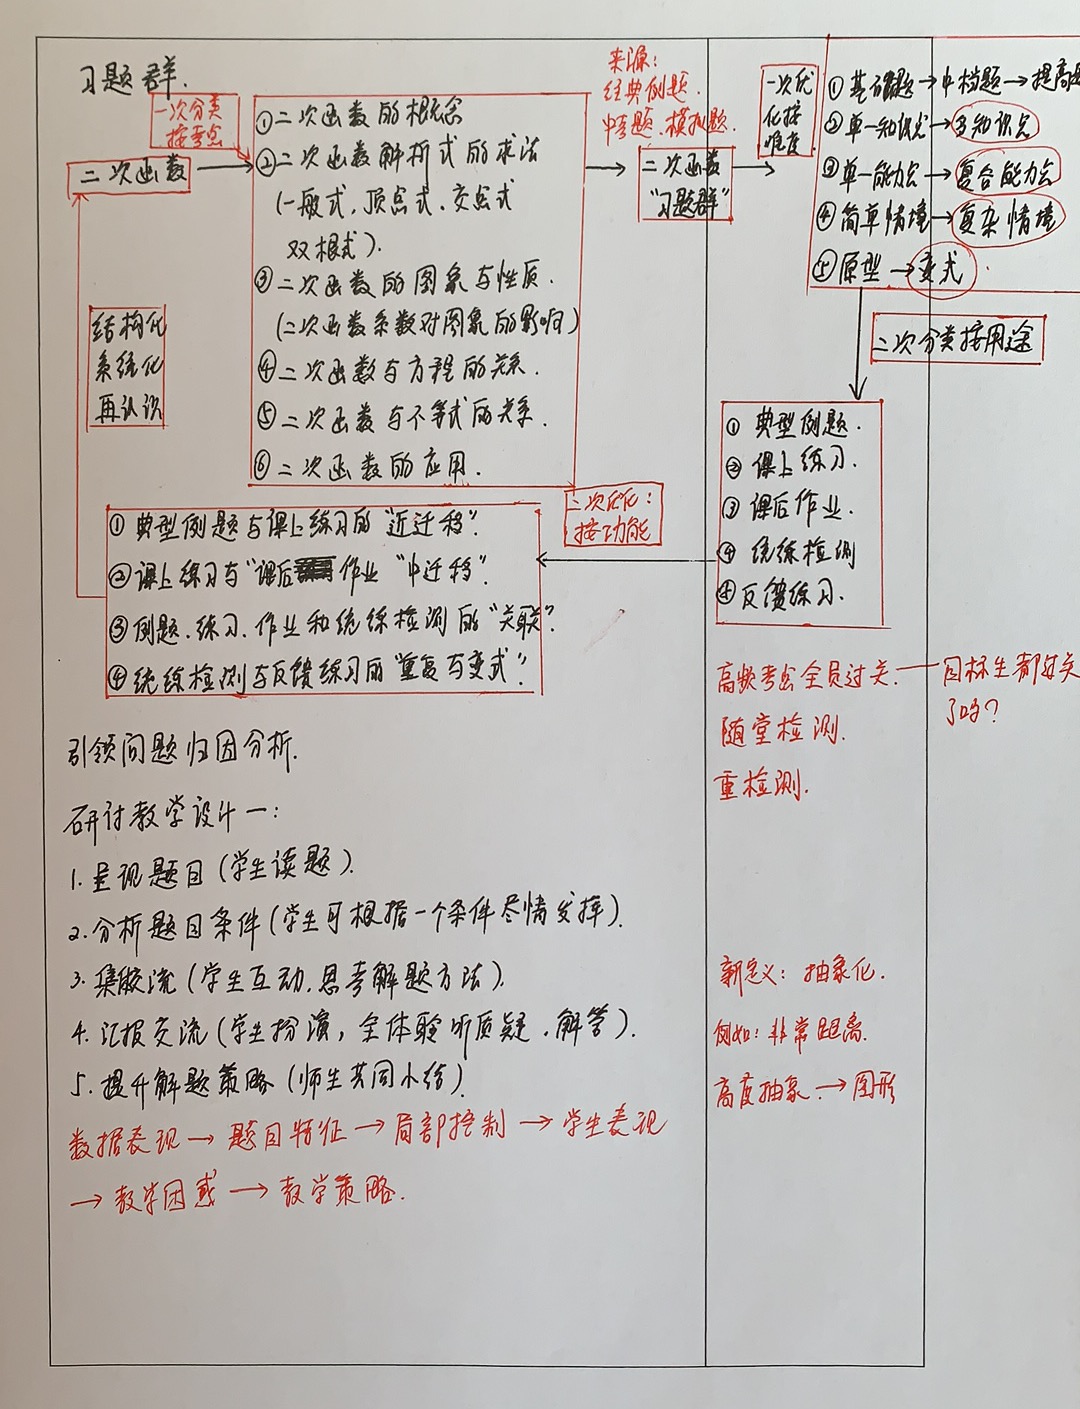 习题群.
一次分类
按考点
二次函数
①二次函数的概念
②二次函数解析式的求法
(一般式.顶点式.交点式
双根式).
③二次函数的图象与性质.
(二次函数系数对图象的影响)
④二次函数与方程的关系.
⑤二次函数与不等式的关系.
⑥二次函数的应用.
来源:
经典例题.
中考题.模拟题.
二次函数
"习题群"
一次优
化按
难度
①基础题→中档题→提高
②单一知识点→多知识点
③单一能力→复合能力
④简单情境→复杂情境
⑤原型→变式.
二次分类按用途
① 典型例题.
② 课上练习.
③ 课后作业.
④ 统练检测
④反馈练习.
二次优化:
按功能
①典型例题与课上练习的"近迁移".
②课上练习与"课后作业"中迁移".
③例题.练习.作业和统练检测的"关联".
④统练检测与反馈练习的"重复与变式".
结构化
系统化
再认识
高频考点全员过关.——目标生都过关
了吗?
随堂检测.
重检测.
引领问题归因分析.
研讨教学设计一:
1.呈现题目(学生读题).
2.分析题目条件(学生可根据一个条件尽情发挥).
3.集流(学生互动.思考解题方法).
4.汇报交流(学生扮演,全体验听质疑.解答).
5.提升解题策略(师生共同小结).
数据表现→题目特征→局部控制→学生表现
→教学困惑→教学策略.
新定义:抽象化.
例如:非常距离.
高度抽象.→图形